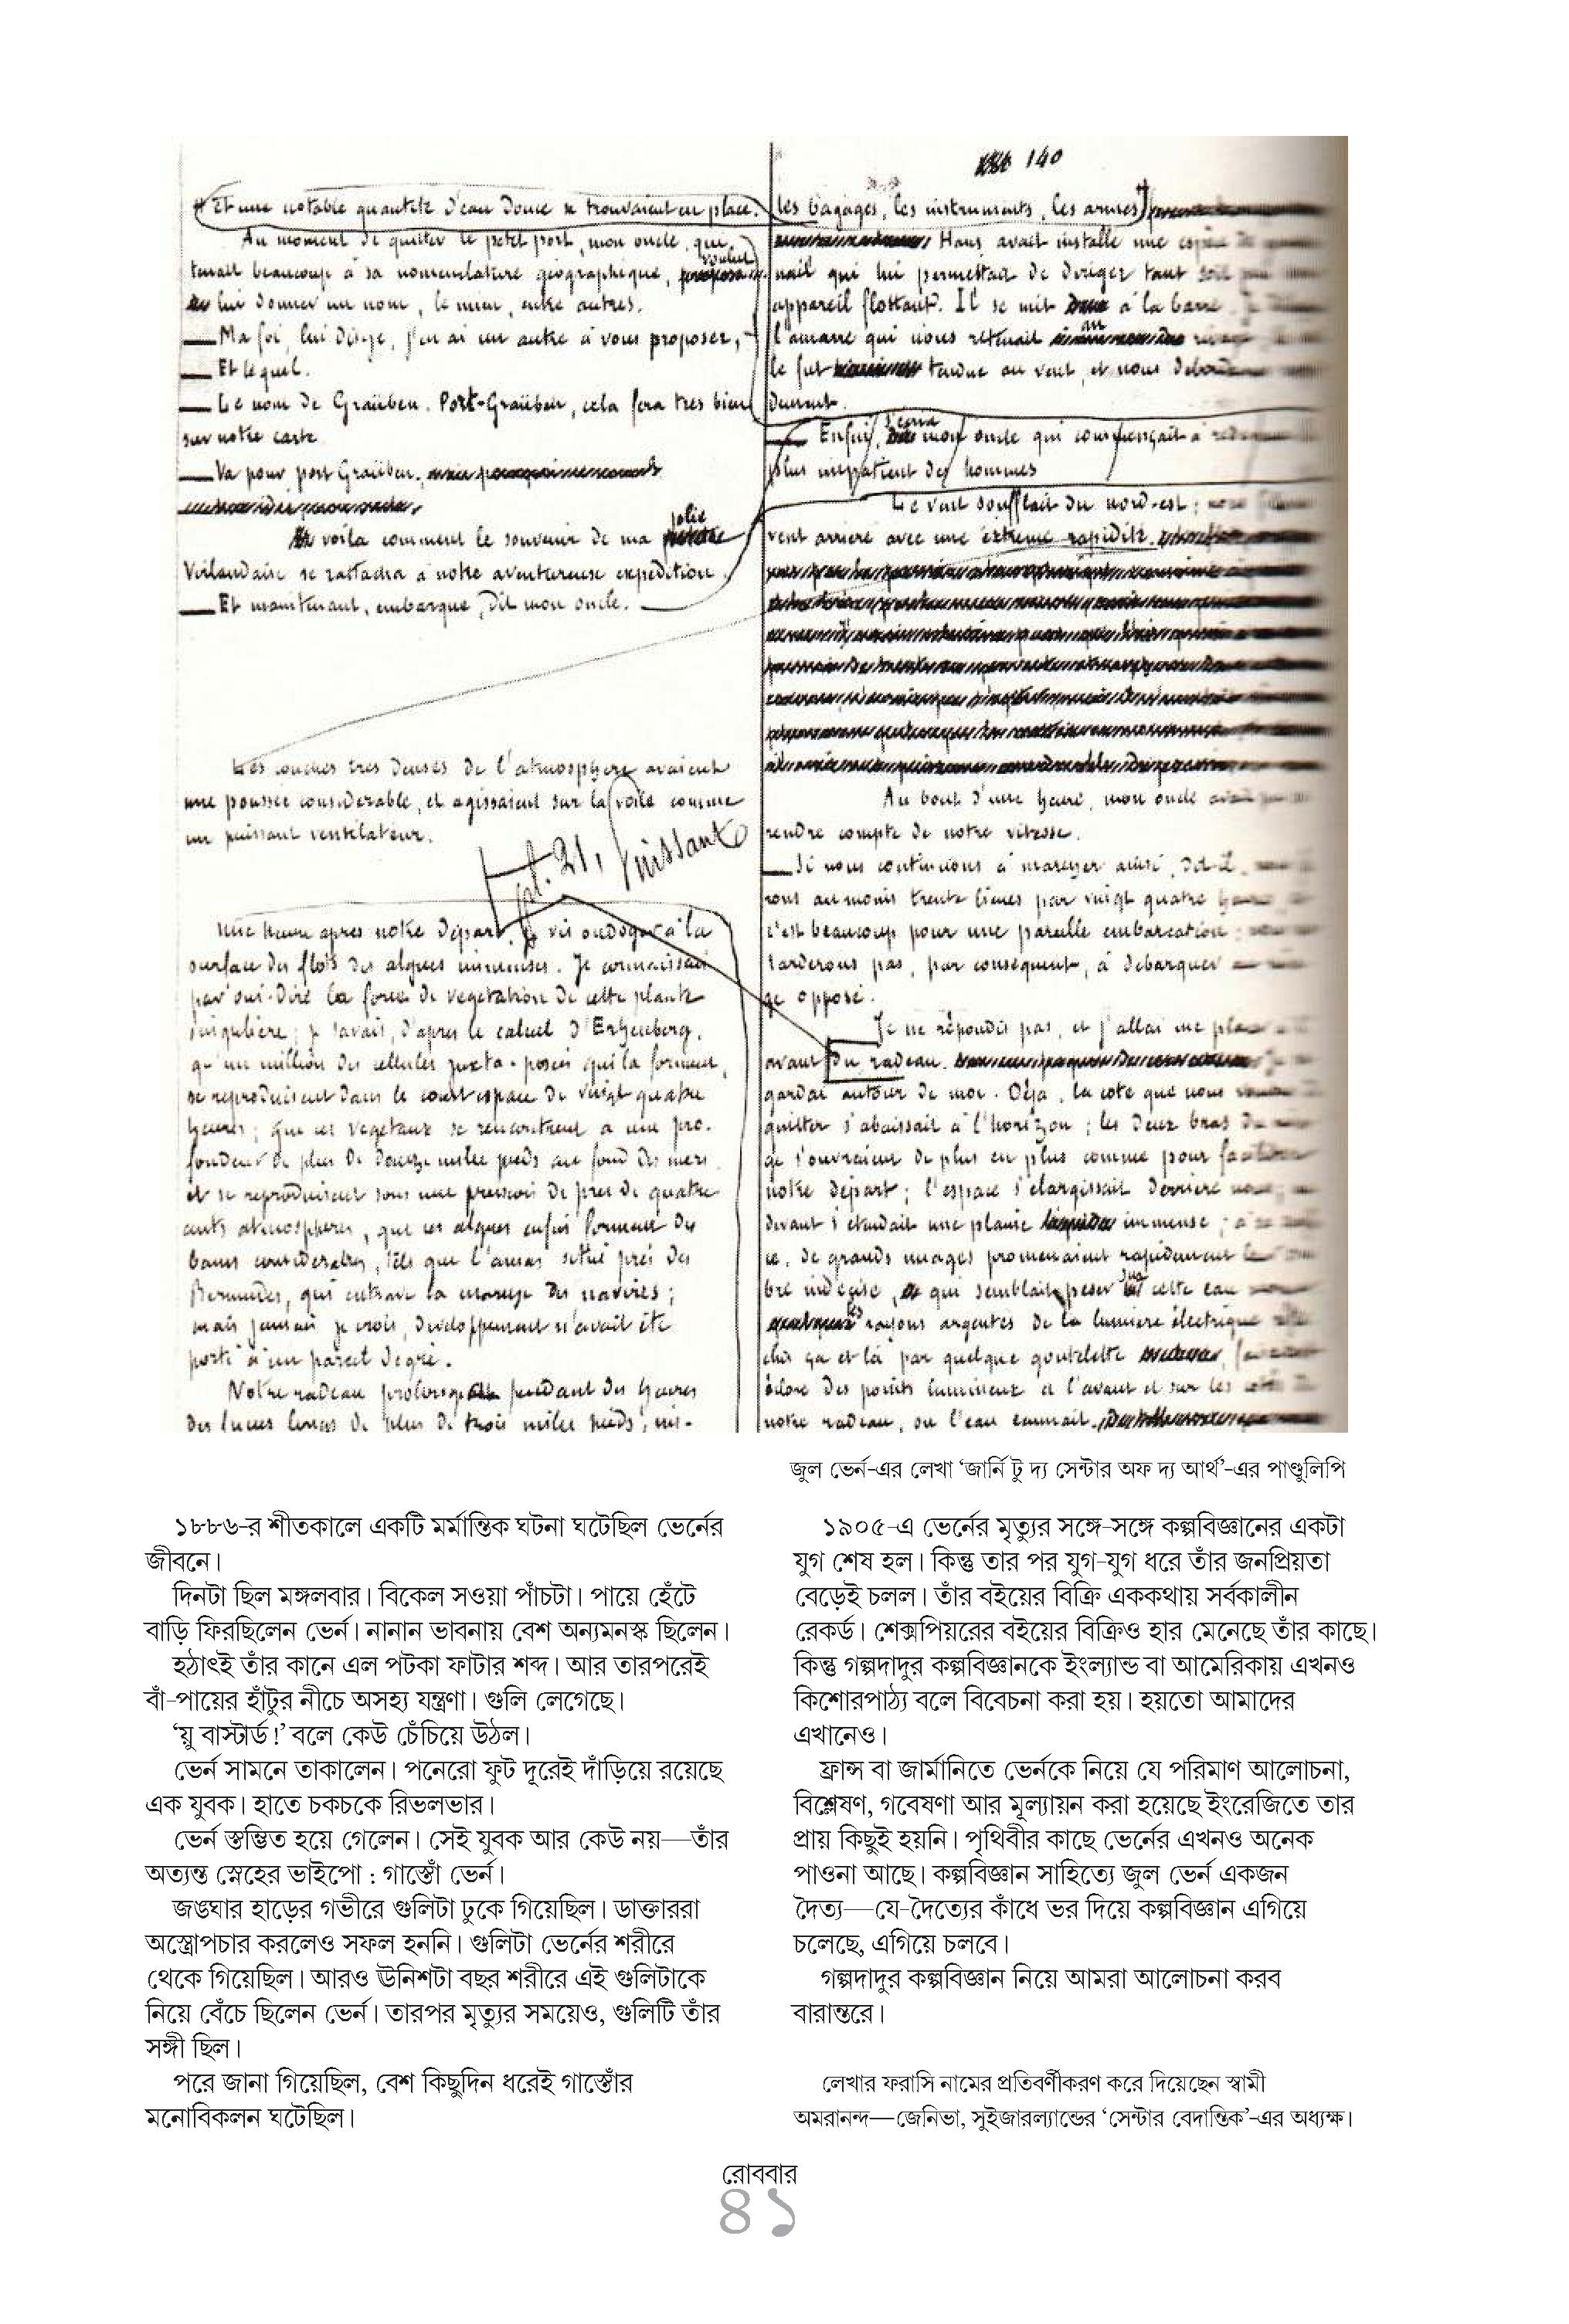 140
Et une notable quantité d'eau douce se trouvaient en place.
Au moment de quitter le petit port, mon oncle, qui
tenait beaucoup à sa nomenclature géographique, voulut
lui donner un nom, le mien, entre autres.
— Ma foi, lui dis-je, j'en ai un autre à vous proposer,
— Et lequel.
— Le nom de Graüben. Port-Graüben, cela fera très bien
sur notre carte
— Va pour port Graüben.
voilà comment le souvenir de ma jolie
Virlandaise se rattacha à notre aventureuse expédition.
— Et maintenant, embarque, dit mon oncle.
Les couches très denses de l'atmosphère avaient
une poussée considérable, et agissaient sur la voile comme
un puissant ventilateur.
Une heure après notre départ, je vis ondoyer à la
surface des flots des algues immenses. Je connaissais
par ouï-dire la force de végétation de cette plante
singulière; je savais, d'après le calcul d'Erhenberg,
qu'un million des cellules juxta-posées qui la forment,
se reproduisent dans le court espace de vingt quatre
heures; que ces végétaux se rencontrent à une pro-
fondeur de plus de douze mille pieds au fond des mers
et se reproduisent sous une pression de près de quatre
cents atmosphères, que ces algues enfin forment des
bancs considérables, tels que l'amas situé près des
Bermudes, qui entrave la marche des navires;
mais jamais, je crois, développement n'avait été
porté à un pareil degré.
Notre radeau prolongea pendant des heures
des fucus longs de plus de trois mille pieds,
les bagages, les instruments, les armes
Hans avait installé une espèce de
nail qui lui permettait de diriger tant soit
appareil flottant. Il se mit à la barre.
l'amarre qui nous retenait au
le fut tendue au vent, et nous
dument.
— Enfin, s'écria mon oncle qui commençait à
plus impatient des hommes
Le vent soufflait du nord-est; nous
vent arrière avec une extrême rapidité.
Au bout d'une heure, mon oncle avait pu
rendre compte de notre vitesse.
— Si nous continuons à marcher ainsi, dit-il,
rons au moins trente lieues par vingt quatre heures,
c'est beaucoup pour une pareille embarcation;
tarderons pas, par conséquent, à débarquer
ge opposé.
Je ne répondis pas, et j'allai me placer
avant du radeau.
gardai autour de moi. Déjà, la côte que nous
quitter s'abaissait à l'horizon; les deux bras du
ge s'ouvraient de plus en plus comme pour faciliter
notre départ; l'espace s'élargissait derrière nous;
devant s'étendait une plaine immense;
ce, de grands nuages promenaient rapidement
bre indécise, qui semblait peser sur cette eau
les rayons argentés de la lumière électrique
chis çà et là par quelque gouttelette
éclore des points lumineux à l'avant et sur les côtés de
notre radeau, où l'eau
জুল ভের্ন-এর লেখা ‘জার্নি টু দ্য সেন্টার অফ দ্য আর্থ’-এর পাণ্ডুলিপি
১৮৮৬-র শীতকালে একটি মর্মান্তিক ঘটনা ঘটেছিল ভের্নের
জীবনে।
দিনটা ছিল মঙ্গলবার। বিকেল সওয়া পাঁচটা। পায়ে হেঁটে
বাড়ি ফিরছিলেন ভের্ন। নানান ভাবনায় বেশ অন্যমনস্ক ছিলেন।
হঠাৎই তাঁর কানে এল পটকা ফাটার শব্দ। আর তারপরেই
বাঁ-পায়ের হাঁটুর নীচে অসহ্য যন্ত্রণা। গুলি লেগেছে।
‘য়ু বাস্টার্ড!’ বলে কেউ চেঁচিয়ে উঠল।
ভের্ন সামনে তাকালেন। পনেরো ফুট দূরেই দাঁড়িয়ে রয়েছে
এক যুবক। হাতে চকচকে রিভলভার।
ভের্ন স্তম্ভিত হয়ে গেলেন। সেই যুবক আর কেউ নয়—তাঁর
অত্যন্ত স্নেহের ভাইপো : গাস্তোঁ ভের্ন।
জঙ্ঘার হাড়ের গভীরে গুলিটা ঢুকে গিয়েছিল। ডাক্তাররা
অস্ত্রোপচার করলেও সফল হননি। গুলিটা ভের্নের শরীরে
থেকে গিয়েছিল। আরও ঊনিশটা বছর শরীরে এই গুলিটাকে
নিয়ে বেঁচে ছিলেন ভের্ন। তারপর মৃত্যুর সময়েও, গুলিটি তাঁর
সঙ্গী ছিল।
পরে জানা গিয়েছিল, বেশ কিছুদিন ধরেই গাস্তোঁর
মনোবিকলন ঘটেছিল।
১৯০৫-এ ভের্নের মৃত্যুর সঙ্গে-সঙ্গে কল্পবিজ্ঞানের একটা
যুগ শেষ হল। কিন্তু তার পর যুগ-যুগ ধরে তাঁর জনপ্রিয়তা
বেড়েই চলল। তাঁর বইয়ের বিক্রি এককথায় সর্বকালীন
রেকর্ড। শেক্সপিয়রের বইয়ের বিক্রিও হার মেনেছে তাঁর কাছে।
কিন্তু গল্পদাদুর কল্পবিজ্ঞানকে ইংল্যান্ড বা আমেরিকায় এখনও
কিশোরপাঠ্য বলে বিবেচনা করা হয়। হয়তো আমাদের
এখানেও।
ফ্রান্স বা জার্মানিতে ভের্নকে নিয়ে যে পরিমাণ আলোচনা,
বিশ্লেষণ, গবেষণা আর মূল্যায়ন করা হয়েছে ইংরেজিতে তার
প্রায় কিছুই হয়নি। পৃথিবীর কাছে ভের্নের এখনও অনেক
পাওনা আছে। কল্পবিজ্ঞান সাহিত্যে জুল ভের্ন একজন
দৈত্য—যে-দৈত্যের কাঁধে ভর দিয়ে কল্পবিজ্ঞান এগিয়ে
চলেছে, এগিয়ে চলবে।
গল্পদাদুর কল্পবিজ্ঞান নিয়ে আমরা আলোচনা করব
বারান্তরে।
লেখার ফরাসি নামের প্রতিবর্ণীকরণ করে দিয়েছেন স্বামী
অমরানন্দ—জেনিভা, সুইজারল্যান্ডের ‘সেন্টার বেদান্তিক’-এর অধ্যক্ষ।
রোববার
৪১